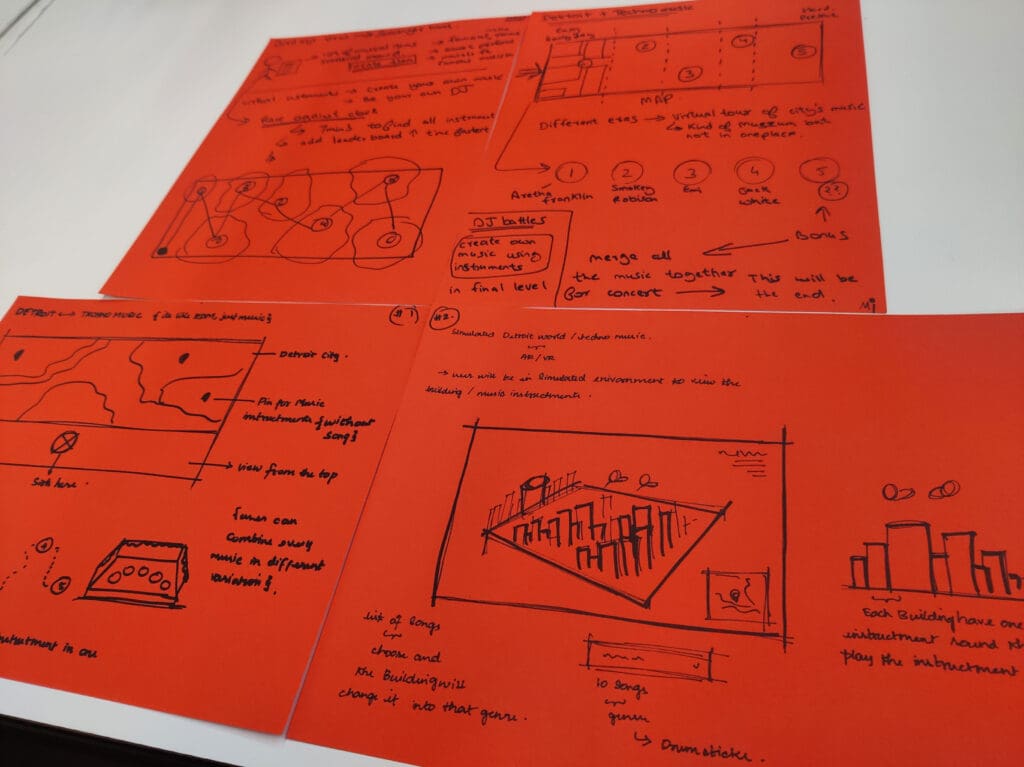 musical
music
virtual instruments → create your own music
→ Be your own DJ
Race against clock
to find all instrument
add leader board ↑ time
Detroit + Techno music
MAP
Different eras → Virtual tour of city's music
Kind of museum but
not in one place.
1 2 3 4 5
Aretha Franklin
Smokey Robison
Em
Jack White
??
Bonus
DJ battles
create own
music using
instruments
in final level
merge all
the music together
for concert → This will be
the end.
DETROIT TECHNO MUSIC
just music}
#1
Detroit City.
Pin for Music
instructments {without
song}
View from the top
here.
{user can
combine every
music in different
variation}.
in one
#2.
Simulated Detroit world / techno music.
AR/VR
→ user will be in Simulated enivornment to view the
building / music instructments.
list of songs
choose and
the Building will
change it into that genre.
10 songs
genre
Drumsticks.
Each Building have one
instructment sound
play the instructment